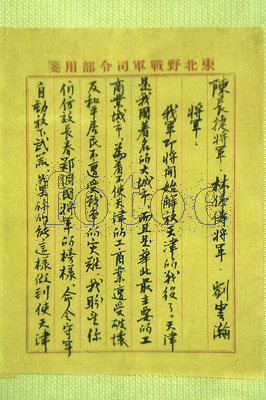 東北野戰軍司令部用箋
陳長捷將軍、林偉儔將軍、劉雲瀚
將軍：
我軍即將開始解放天津的戰役了。天津
是我國著名的大城市，而且是華北最主要的工
商業城市，為着不使天津的工商業遭受破壞
及和平居民不遭受戰爭的災難，我盼望你
們仿效長春鄭洞國將軍的榜樣，命令守軍
自動放下武器。只要你們能這樣做到使天津
fotoe